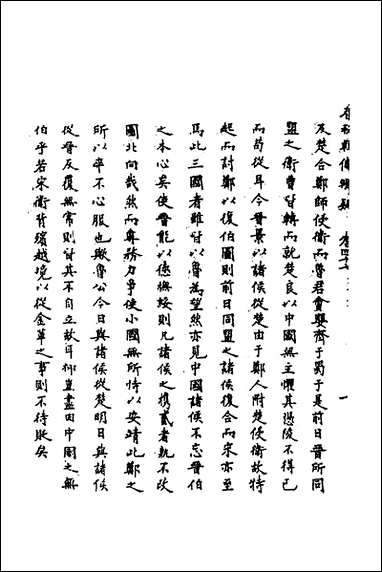 春秋輯傳辨疑 卷四十
及楚合鄭師使衛而魯君會嬰齊于蜀于是前日晉所同
盟之衛曹皆轉而就楚良以中國無主懼其憑陵不得已
而苟從耳今晉景以諸侯從楚由于鄭人附楚使衛故特
起而討鄭以復伯圖則前日同盟之諸侯復合而宋亦至
焉此三國者雖皆以魯為望然亦見中國諸侯不忘晉伯
之本心矣使晉能以德撫綏則凡諸侯之攜貳者孰不改
圖北向哉然而專務力爭使小國無所恃以安靖此鄭之
所以卒不心服也歟魯公今日與諸侯從楚明日與諸侯
從晉反復無常則皆其不自立故耳抑豈盡由中國之無
伯乎若宋衛背殯越境以從金革之事則不待貶矣